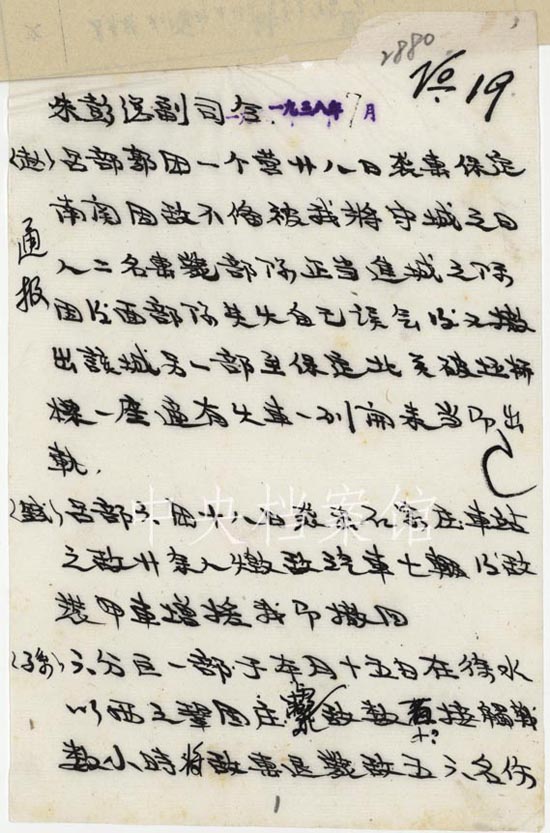 2880
No. 19
朱彭总副司令 一九三八年7月
通报
(赵)吕部郭团一个营廿八日袭击保定
南关因敌不备被我将守城之日
人二名击毙部队正当进城之际
因后面部队失失自己误会后又撤
出该城另一部至保定北关破坏桥
梁一座适有火车一列开来当即出
轨.
吕部六团廿八日袭击石家庄车站
之敌廿余人烧敌汽车七辆后敌
装甲车增援我即撤回
(孙)六分区一部于本月十五日在徐水
以西之 固庄 敌数百接触战
十?
数小时将敌击退毙敌五六名伤
中央档案馆
1